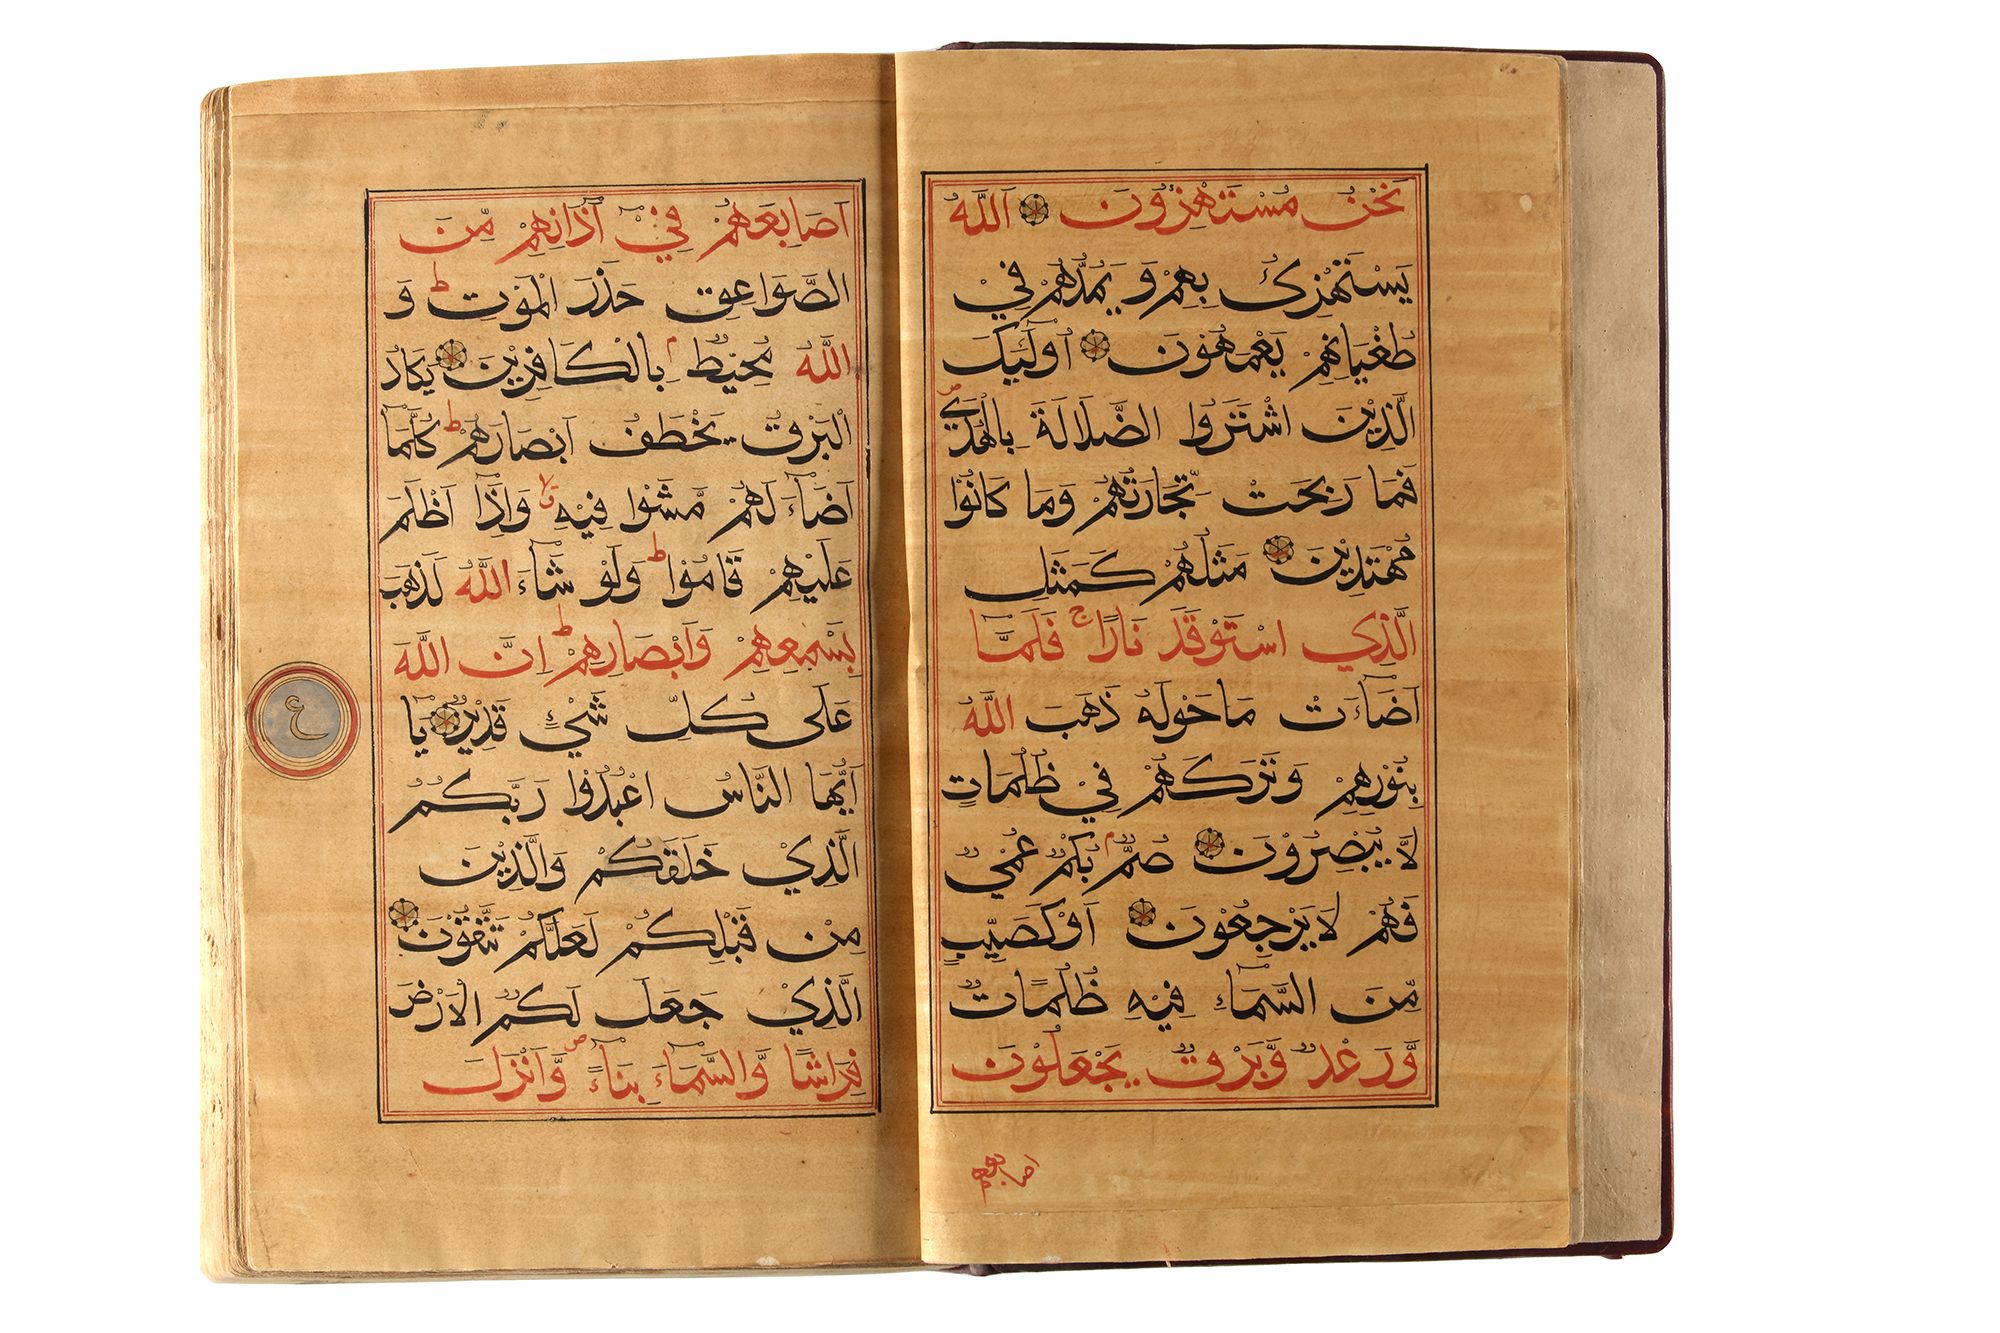 نَحْنُ مُسْتَهْزِؤُنَ اَللّٰهُ
يَسْتَهْزِئُ بِهِمْ وَ يَمُدُّهُمْ فِيْ
طُغْيَانِهِمْ يَعْمَهُوْنَ اُولٰٓئِكَ
الَّذِيْنَ اشْتَرَوُا الضَّلَالَةَ بِالْهُدٰىۖ
فَمَا رَبِحَتْ تِّجَارَتُهُمْ وَمَا كَانُوْا
مُهْتَدِيْنَ مَثَلُهُمْ كَمَثَلِ
الَّذِي اسْتَوْقَدَ نَارًاۚ فَلَمَّآ
اَضَآءَتْ مَاحَوْلَهُ ذَهَبَ اللّٰهُ
بِنُوْرِهِمْ وَتَرَكَهُمْ فِيْ ظُلُمَاتٍ
لَّا يُبْصِرُوْنَ صُمٌّ بُكْمٌ عُمْيٌ
فَهُمْ لَا يَرْجِعُوْنَ اَوْكَصَيِّبٍ
مِّنَ السَّمَآءِ فِيْهِ ظُلُمَاتٌ
وَّرَعْدٌ وَّبَرْقٌ يَجْعَلُوْنَ
اصابعهم
اَصَابِعَهُمْ فِيْٓ اٰذَانِهِمْ مِّنَ
الصَّوَاعِقِ حَذَرَ الْمَوْتِ ط وَ
اللّٰهُ مُحِيْطٌ م بِالْكَافِرِيْنَ يَكَادُ
الْبَرْقُ يَخْطَفُ اَبْصَارَهُمْ ط كُلَّمَآ
اَضَآءَ لَهُمْ مَّشَوْا فِيْهِ وَاِذَآ اَظْلَمَ
عَلَيْهِمْ قَامُوْا ط وَلَوْ شَآءَ اللّٰهُ لَذَهَبَ
بِسَمْعِهِمْ وَاَبْصَارِهِمْ ط اِنَّ اللّٰهَ
عَلٰى كُلِّ شَيْءٍ قَدِيْرٌ يَآ
اَيُّهَا النَّاسُ اعْبُدُوْا رَبَّكُمُ
الَّذِيْ خَلَقَكُمْ وَالَّذِيْنَ
مِنْ قَبْلِكُمْ لَعَلَّكُمْ تَتَّقُوْنَ
الَّذِيْ جَعَلَ لَكُمُ الْاَرْضَ
فِرَاشًا وَّالسَّمَآءَ بِنَآءً ص وَّاَنْزَلَ
ع